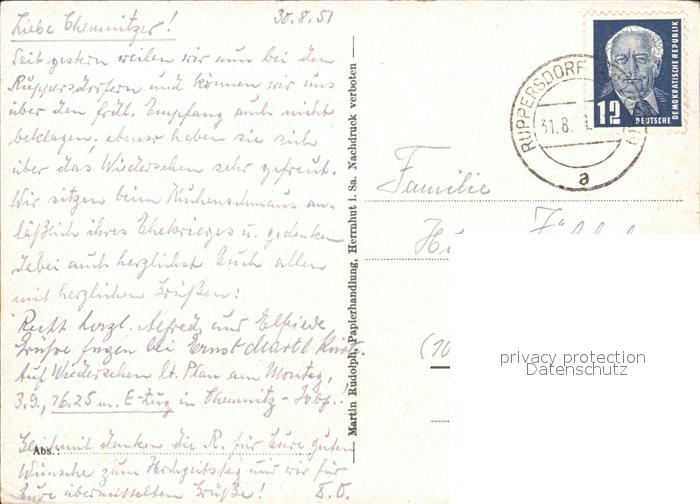 30.8.51
Liebe Chemnitzer!
Seit gestern weilen wir nun bei den
Ruppersdorfern und können wir uns
über den frdl. Empfang auch nicht
beklagen, ebenso haben sie sich
über das Wiedersehen sehr gefreut.
Wir sitzen beim Kuchenschmaus an-
läßlich ihres Ehekrieges u. gedenken
dabei auch herzlichst Euch allen
mit herzlichen Grüßen:
Recht herzl. Alfred und Elfriede
Grüße fügen bei Ernst Martl Kurt.
Auf Wiedersehen lt. Plan am Montag,
3.9., 16.25 m. E-Zug in Chemnitz-Hbf.!
Abs.:
Gleichzeitig danken die R. für Eure guten
Wünsche zum Hochzeitstag und wir für
Eure übermittelten Grüße! D.O.
Martin Rudolph, Papierhandlung, Herrnhut i. Sa. Nachdruck verboten
RUPPERSDORF
31.8.
a
12
DEUTSCHE
DEMOKRATISCHE REPUBLIK
Familie
(10
privacy protection
Datenschutz